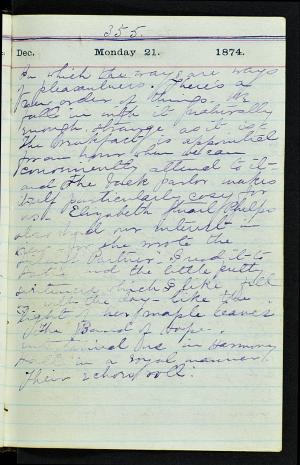 355.
Dec. Monday 21. 1874.
In which the ways are ways
of pleasantness. There's a
new order of things. We
fall in with it naturally
enough, strange as it is.
The breakfast is appointed
for an hour when we can
conveniently attend to it
and the back parlor makes
itself particularly cosy for
us. Elizabeth Stuart Phelps
our interest in
she wrote the
Silent Partner. I read it to
and the little pretty
sentences which I like fill
the day like the
light of her maple leaves
The Band of Hope
in Harmony
Hall in a social manner.
Their echoes roll.